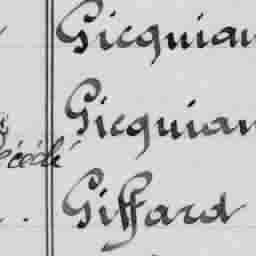 Gicquian
Gicquian
décédé
Giffard